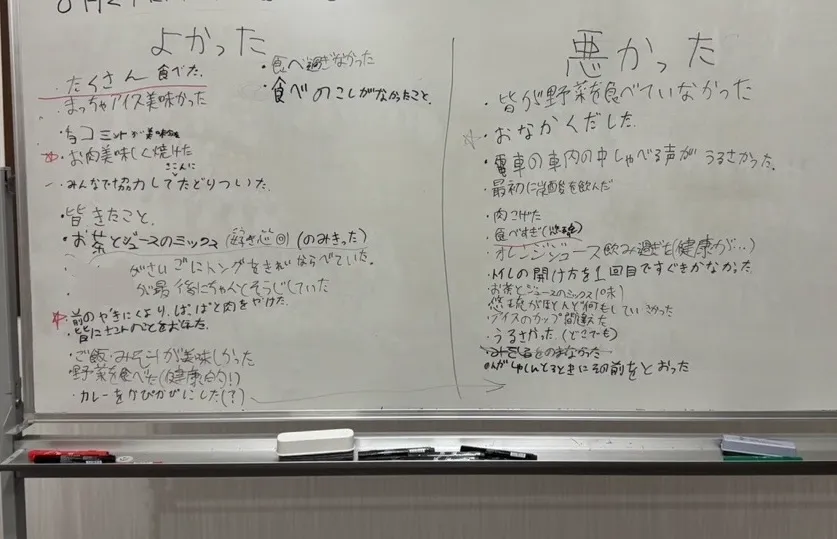 8月2
よかった
・たくさん食べた。
・まっちゃアイス美味かった
・チョコミントが
・お肉美味しく焼けた
ここに
・みんなで協力してたどりついた。
・皆きたこと。
・お茶とジュースのミックス(好き心◎)(のみきった)
がさいごにトングをきれいならべていた。
が最後にちゃんとそうじしていた
・前のやきにくより、ぱっぱと肉をやけた。
・皆に
・ご飯・みそしるが美味しかった
・野菜を食べた(健康的!)
・カレーをかぴかぴにした(?)
・食べ過ぎなかった
・食べのこしがなかったこと。
悪かった
・皆が野菜を食べていなかった
・おなかくだした。
・電車の車内の中しゃべる声がうるさかった。
・最初に を飲んだ
・肉こげた
・食べすぎ
・オレンジジュース飲み過ぎた(健康が…)
・トイレの開け方を1回目ですぐきかなかった
・お茶とジュースのミックス(味)
がほとんど何もしていなかった
・アイスのカップ間違えた
・うるさかった(どこでも)
・みそしるをのまなかった
・ が しんとるときにその前をとおった